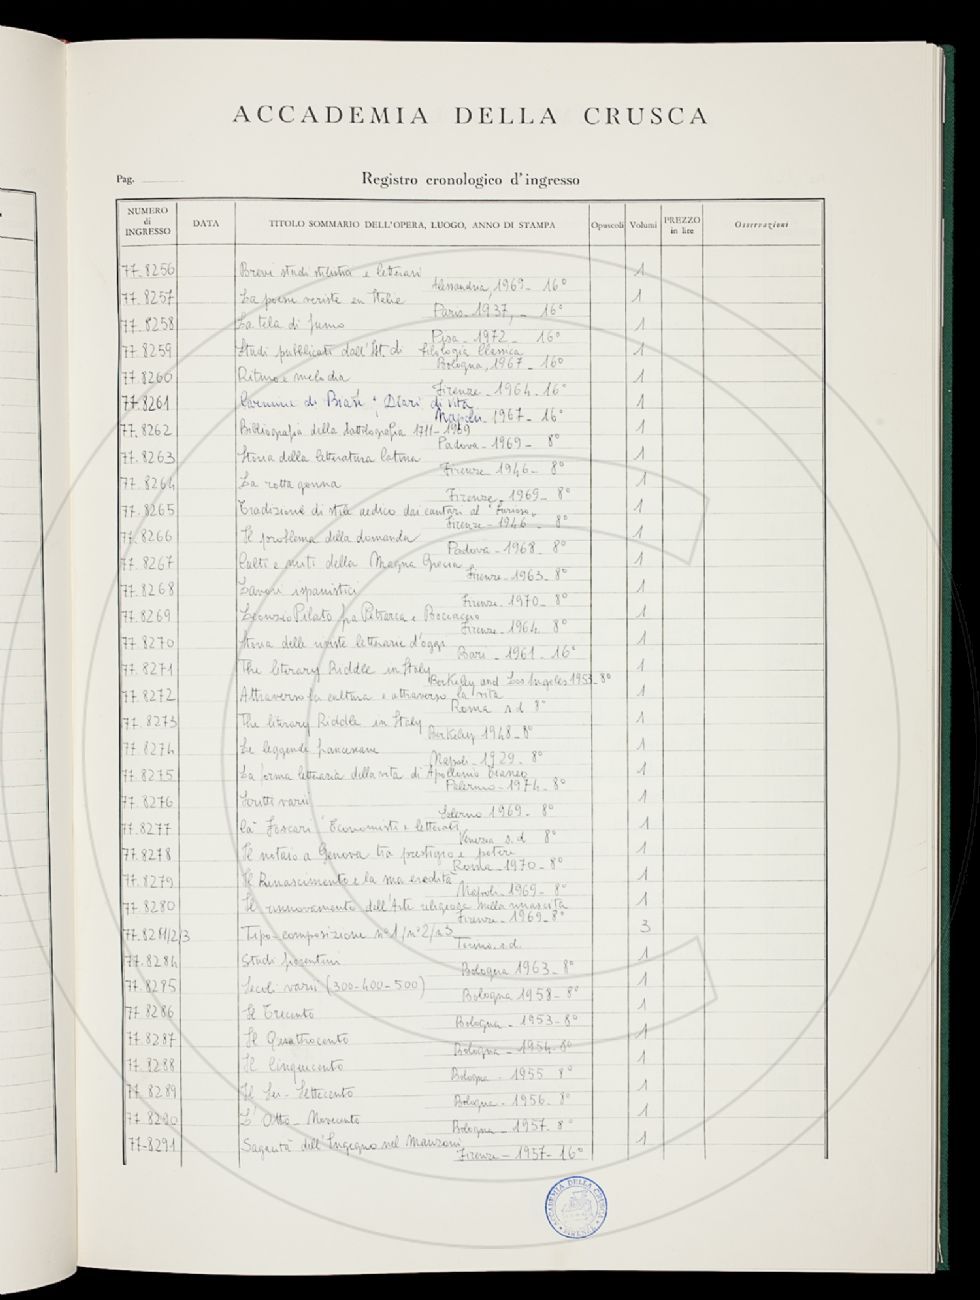 ACCADEMIA DELLA CRUSCA
Pag.
Registro cronologico d'ingresso
NUMERO di INGRESSO DATA TITOLO SOMMARIO DELL'OPERA, LUOGO, ANNO DI STAMPA Opuscoli Volumi PREZZO in lire Osservazioni
77.8256 Brevi studi stilistici e letterari 1
Alessandria, 1969 - 16°
77.8257 La poesie veriste en Italie 1
Paris - 1937, - 16°
77.8258 La tela di fumo 1
Pisa - 1972 - 16°
77.8259 Studi pubblicati dall'Ist. di filologia classica 1
Bologna, 1967 - 16°
77.8260 Ritmo e melodia 1
Firenze - 1964 - 16°
77.8261 Carmine di Biase: Diari di vita 1
Napoli - 1967 - 16°
77.8262 Bibliografia della 1711-1969 1
Padova - 1969 - 8°
77.8263 Storia della letteratura latina 1
Firenze 1946 - 8°
77.8264 La rotta gonna 1
Firenze - 1969 - 8°
77.8265 Tradizione di stile aedico dai cantari al "Furioso" 1
Firenze - 1946 - 8°
77.8266 Il problema della domanda 1
Padova - 1968 - 8°
77.8267 Culti e miti della Magna Grecia 1
Firenze - 1963 - 8°
77.8268 Lavori ispanistici 1
Firenze - 1970 - 8°
77.8269 Leonzio Pilato fra Petrarca e Boccaccio 1
Firenze - 1964 8°
77.8270 Storia delle riviste letterarie d'oggi 1
Bari - 1961 - 16°
77.8271 The literary Riddle in Italy 1
Berkeley and Los Angeles 1953 - 8°
77.8272 Attraverso la cultura e attraverso la vita 1
Roma s.d 8°
77.8273 The literary Riddle in Italy 1
Berkeley 1948 - 8°
77.8274 Le leggende francescane 1
Napoli - 1929 - 8°
77.8275 La forma letteraria della vita di Apollonio Tianeo 1
Palermo - 1974 - 8°
77.8276 Scritti varii 1
Salerno 1969 - 8°
77.8277 Ca' Foscari Economisti e letterati 1
Venezia s.d 8°
77.8278 Il notaio a Genova tra prestigio e potere 1
Roma - 1970 - 8°
77.8279 Il Rinascimento e la sua eredità 1
Napoli - 1969 - 8°
77.8280 Il rinnovamento dell'Arte religiosa nella rinascita 1
Firenze - 1969 - 8°
77.8281/2/3 Tipo-composizione n° 1/n° 2/n° 3 3
Torino s.d.
77.8284 Studi fiorentini 1
Bologna 1963 - 8°
77.8285 Secoli varii (300-400-500) 1
Bologna 1958 - 8°
77.8286 Il Trecento 1
Bologna - 1953 - 8°
77.8287 Il Quattrocento 1
Bologna - 1954 - 8°
77.8288 Il Cinquecento 1
Bologna - 1955 8°
77.8289 Il Sei-Settecento 1
Bologna - 1956 - 8°
77.8290 L'Otto-Novecento 1
Bologna - 1957 - 8°
77-8291 Sagacità dell'Ingegno nel Manzoni 1
Firenze - 1937 - 16°
ACCADEMIA DELLA CRUSCA
FIRENZE